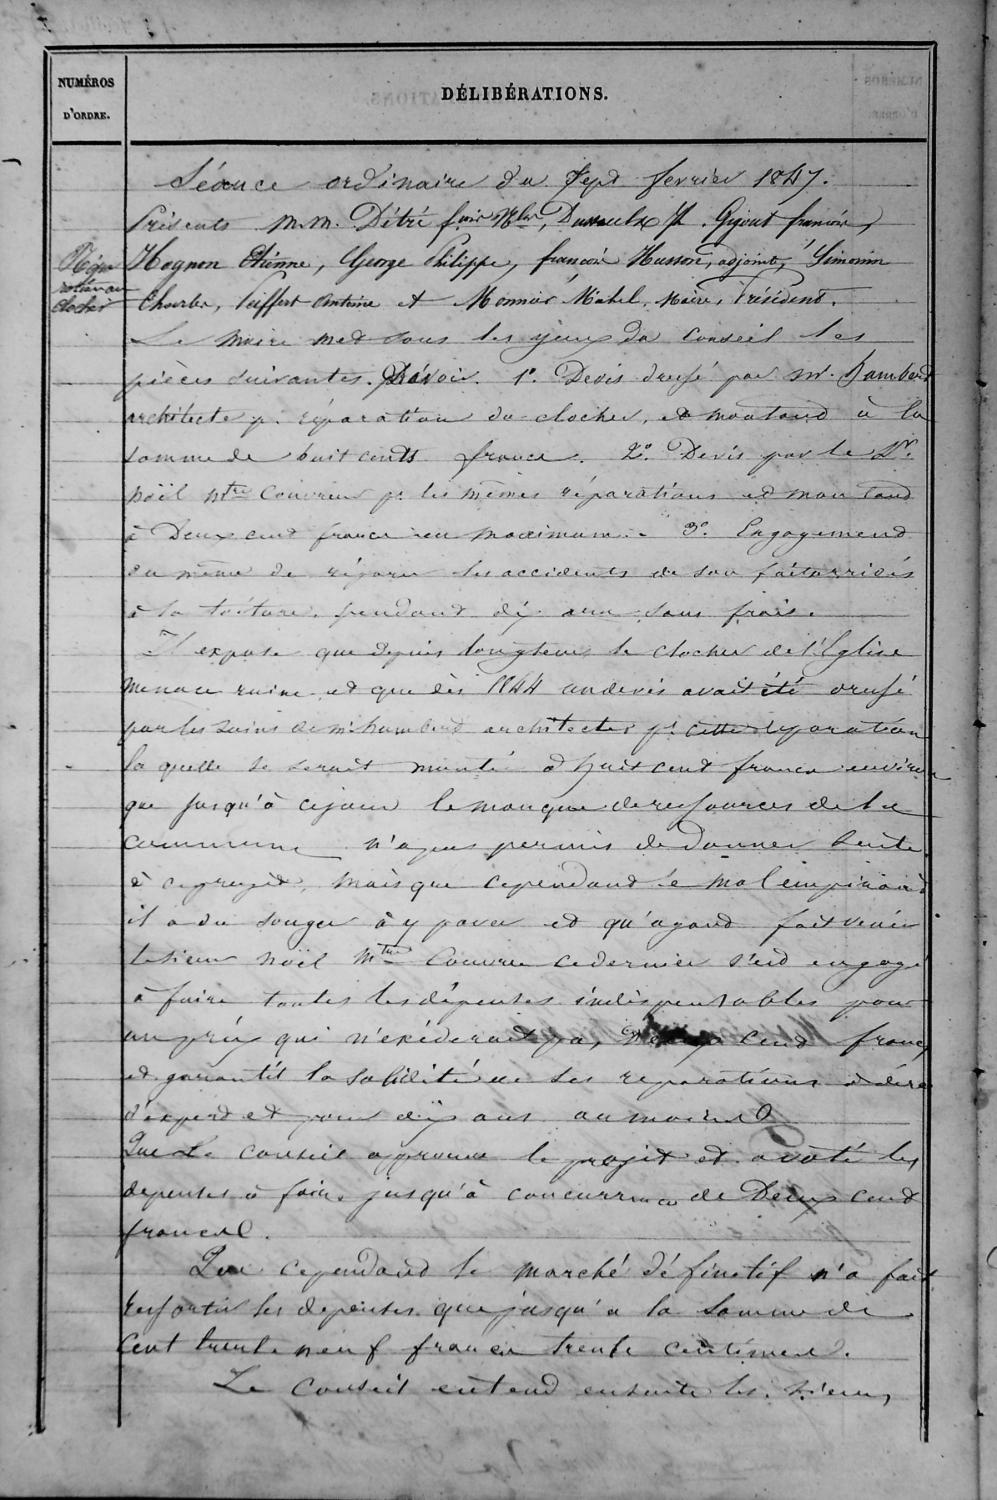 NUMÉROS
D'ORDRE.
DÉLIBÉRATIONS.
Séance ordinaire du sept fevrier 1847.
Présents M.M. Détré, Dussaulx, Gigout françois,
Hognon Etienne, George Philippe, françois Husson, adjoint, Simonin
Charles, Seiffert Antoine et Monnier Michel, Maire, Président.
Réparation au
clocher
Le Maire met sous les yeux du Conseil les
pièces suivantes. Savoir. 1°. Devis dressé par mr. hambert
architecte pr. réparation du clocher, et montand à la
somme de huit cents francs. 2°. Devis par le Sr.
Noël Mtre Couvreur pr. les mêmes réparations et montand
à Deux cent francs au maximum. 3°. Engagement
du même de réparer les accidents de son fait arrivés
à la toiture, pendant dix ans sans frais.
Il expose que depuis longtems le clocher de l'Eglise
menace ruine et que dès 1844 un devis avait été dressé
par les soins de mr hambert architecte pr. cette réparation
la quelle se serait monté à huit cent francs environ
que jusqu'à ce jour le manque de ressources de la
commune n'a pas permis de donner suite
à ce projet, mais que cependant le mal empirant
il a du songer à y parer et qu'ayant fait venir
le sieur Noël Mtre Couvreur ce dernier s'est engagé
à faire toutes les dépenses indispensables pour
un prix qui n'exéderait pas Deux cent francs
et garantit la solidité de ses réparations à dire
d'expert et pour dix ans au moins
Que Le Conseil approuva le projet et a voté les
dépenses à faire jusqu'à concurrence de Deux cent
francs.
Que cependant le marché définitif n'a fait
ressortir les dépenses que jusqu'à la somme de
Cent trente neuf francs trente centimes.
Le Conseil entend ensuite les sieurs